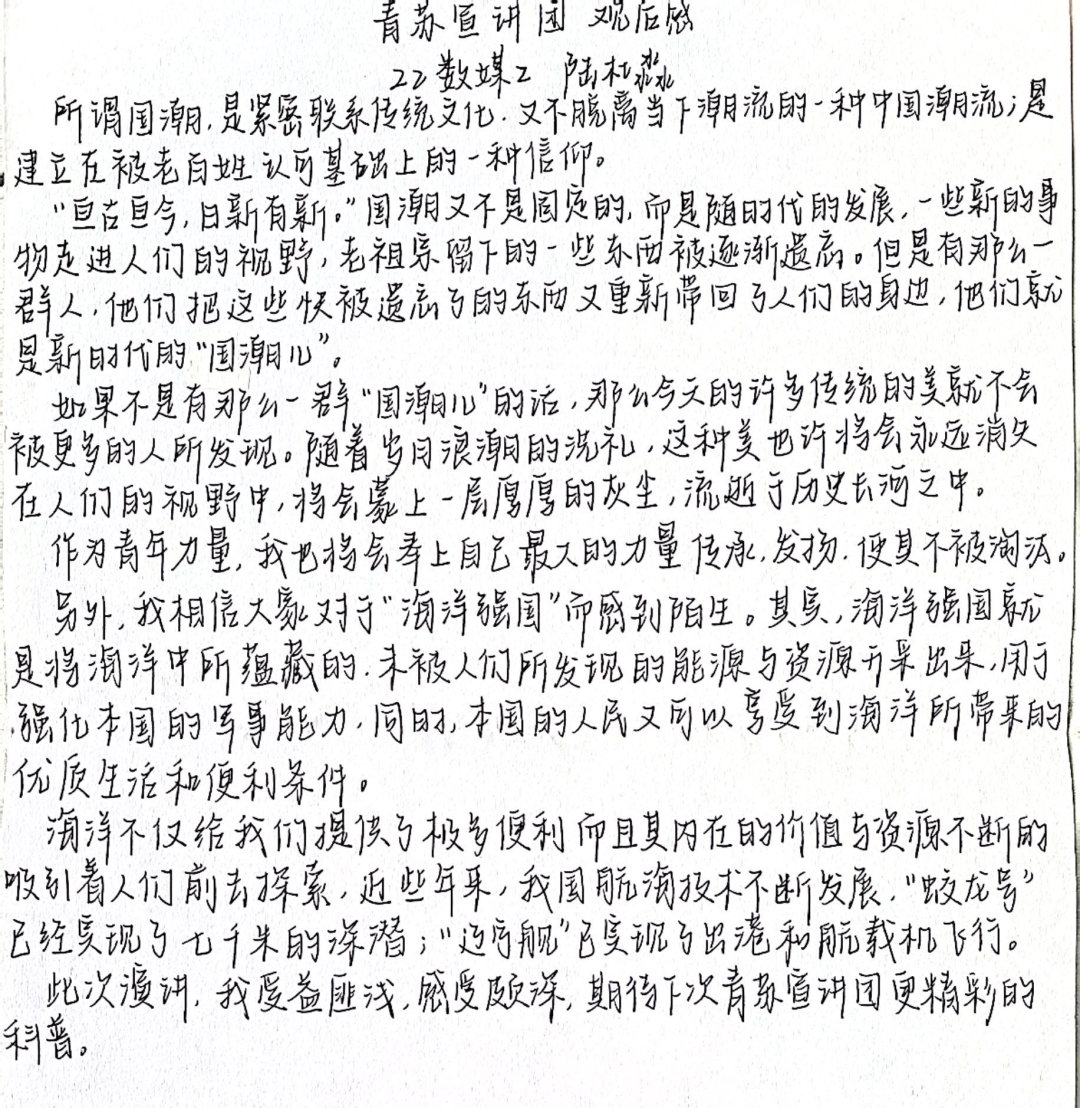 青苏宣讲团 观后感
22数媒2 陆杜淼
所谓国潮,是紧密联系传统文化.又不脱离当下潮流的一种中国潮流;是
建立在被老百姓认可基础上的一种信仰。
“亘古亘今,日新有新。”国潮又不是固定的,而是随时代的发展,一些新的事
物走进人们的视野,老祖宗留下的一些东西被逐渐遗忘。但是有那么一
群人,他们把这些快被遗忘了的东西又重新带回了人们的身边,他们就
是新时代的“国潮儿”。
如果不是有那么一群“国潮儿”的话,那么今天的许多传统的美就不会
被更多的人所发现。随着岁月浪潮的洗礼,这种美也许将会永远消失
在人们的视野中,将会蒙上一层厚厚的灰尘,流逝于历史长河之中。
作为青年力量,我也将会奉上自己最大的力量传承,发扬.使其不被淘汰。
另外,我相信大家对于“海洋强国”而感到陌生。其实,海洋强国就
是将海洋中所蕴藏的.未被人们所发现的能源与资源开采出来,用于
强化本国的军事能力,同时,本国的人民又可以享受到海洋所带来的
优质生活和便利条件。
海洋不仅给我们提供了极多便利而且其内在的价值与资源不断的
吸引着人们前去探索,近些年来,我国航海技术不断发展,“蛟龙号”
已经实现了七千米的深潜;“辽宁舰”已实现了出港和航载机飞行。
此次演讲,我受益匪浅,感受颇深,期待下次青苏宣讲团更精彩的
科普。